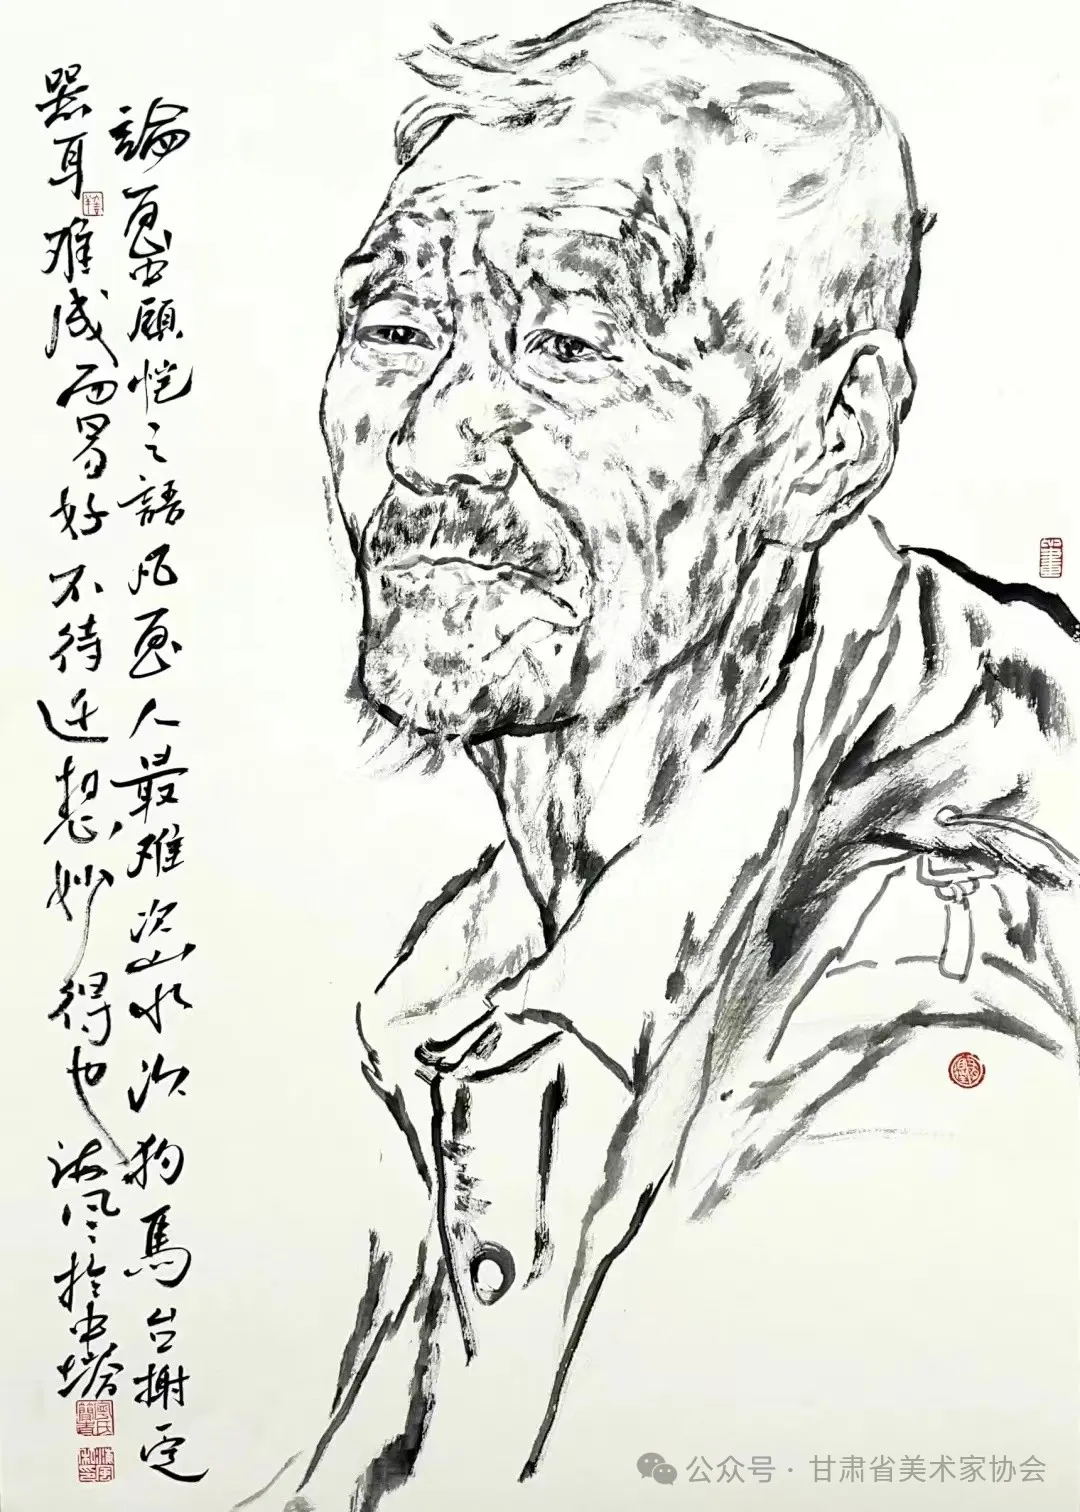 論畫 顧愷之語 凡画人最难 次山水 次狗馬 台榭一定
器耳 难成而易好 不待迁想妙得也 海风於中塔
公众号 · 甘肃省美术家协会